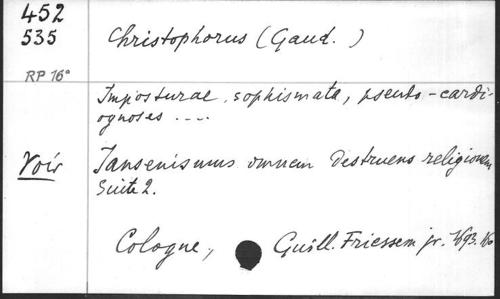 452
535
Christophorus (Gaud. )
RP 16°
Imposturae, sophismata, pseudo-cardi-
ognoses ....
Voir
Jansenismus omnem destruens religionem
Suite 2.
Cologne, Guill. Friessem jr. 1693. 16°